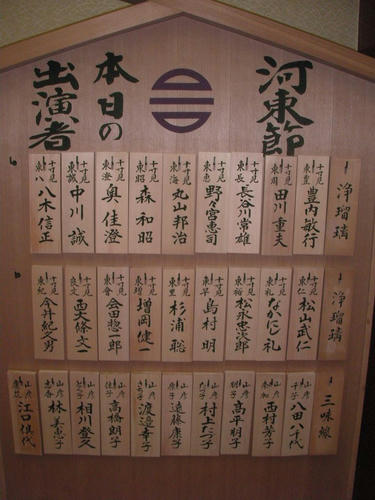 河東節
本日の
出演者
浄瑠璃
十寸見
東豊
豊内敏行
十寸見
東周
田川重夫
十寸見
東長
長谷川常雄
十寸見
東恵
野々宮恵司
十寸見
東海
丸山邦治
十寸見
東昭
森和昭
十寸見
東澄
奥佳澄
十寸見
東誠
中川誠
十寸見
東八
八木信正
浄瑠璃
十寸見
東仁
松山武仁
十寸見
東礼
なかにし礼
十寸見
東裕
松永忠次郎
十寸見
東早
島村明
十寸見
東里
杉浦聡
十寸見
東増
増岡健一
十寸見
東會
會田惣一郎
十寸見
良文
西大條文一
十寸見
東紀
今井紀久男
三味線
山彦
千子
八田八千代
山彦
西村芳子
山彦
朝子
高平朝子
山彦
たつ子
村上たつ子
山彦
康子
遠藤康子
山彦
さち子
渡邉幸子
山彦
佳子
高橋朗子
山彦
登子
相川登久
山彦
林美恵子
山彦
江口倶代